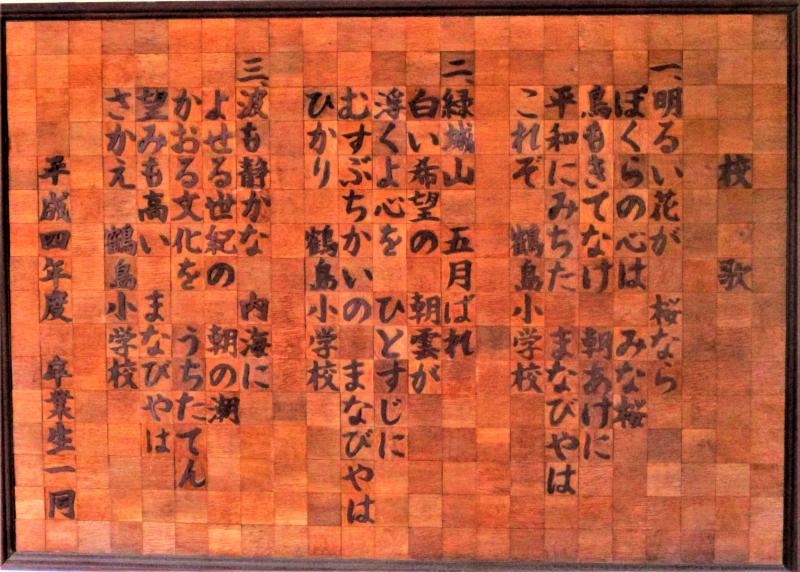 校歌
一、明るい花が 桜なら
ぼくらの心は みな桜
鳥もきてなけ 朝あけに
平和にみちた まなびやは
これぞ 鶴島小学校
二、緑城山 五月ばれ
白い希望の 朝雲が
浮くよ心を ひとすじに
むすぶちかいの まなびやは
ひかり 鶴島小学校
三、波も静かな 内海に
よせる世紀の 朝の潮
かおる文化を うちたてん
望みも高い まなびやは
さかえ 鶴島小学校
平成四年度 卒業生一同